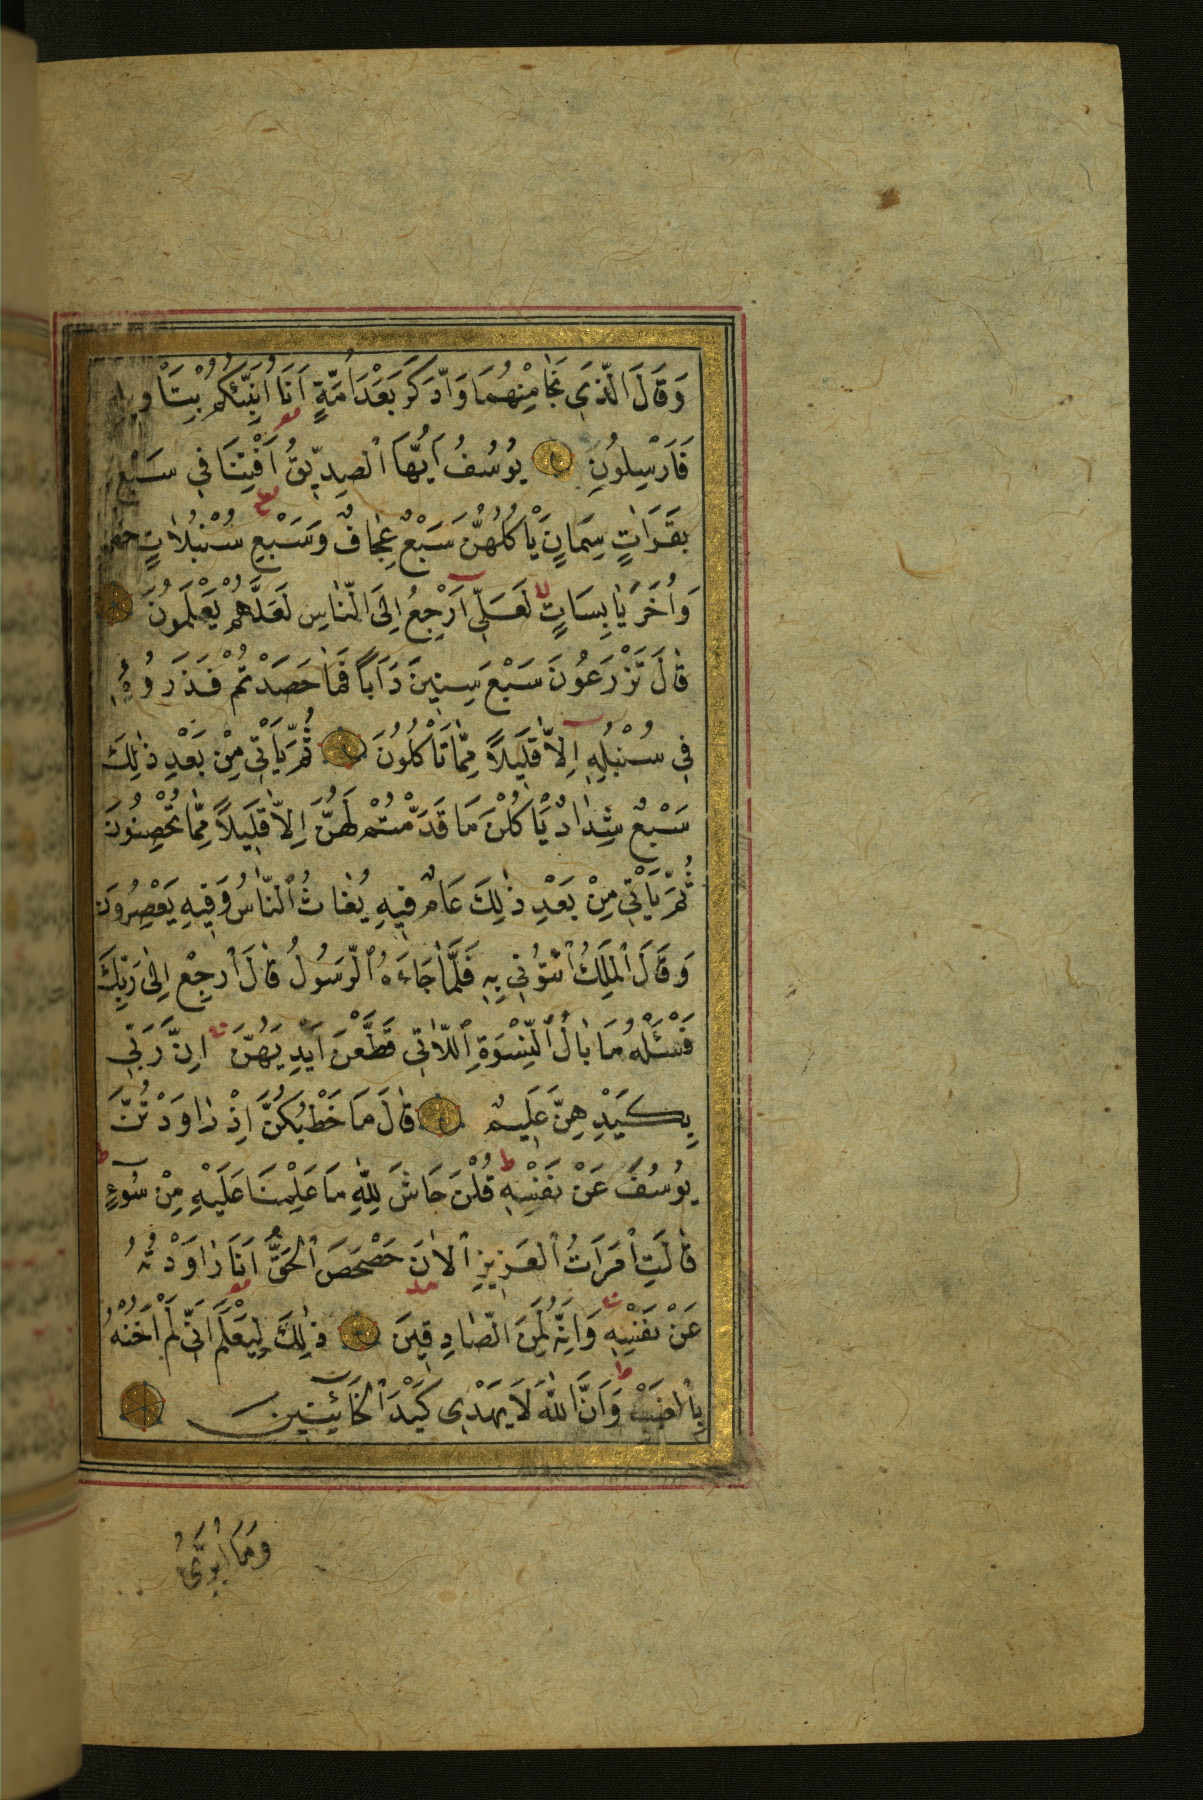 وَقَالَ الَّذِي نَجَا مِنْهُمَا وَادَّكَرَ بَعْدَ اُمَّةٍ اَنَا اُنَبِّئُكُمْ بِتَاْو
فَاَرْسِلُونِ يُوسُفُ اَيُّهَا الصِّدِّيقُ اَفْتِنَا فِي سَبْعِ
بَقَرَاتٍ سِمَانٍ يَاْكُلُهُنَّ سَبْعٌ عِجَافٌ وَسَبْعِ سُنْبُلَاتٍ
وَاُخَرَ يَابِسَاتٍ لَعَلِّي اَرْجِعُ اِلَى النَّاسِ لَعَلَّهُمْ يَعْلَمُونَ
قَالَ تَزْرَعُونَ سَبْعَ سِنِينَ دَاَبًا فَمَا حَصَدْتُمْ فَذَرُوهُ
فِي سُنْبُلِهِ اِلَّا قَلِيلًا مِمَّا تَاْكُلُونَ ثُمَّ يَاْتِي مِنْ بَعْدِ ذٰلِكَ
سَبْعٌ شِدَادٌ يَاْكُلْنَ مَا قَدَّمْتُمْ لَهُنَّ اِلَّا قَلِيلًا مِمَّا تُحْصِنُونَ
ثُمَّ يَاْتِي مِنْ بَعْدِ ذٰلِكَ عَامٌ فِيهِ يُغَاثُ النَّاسُ وَفِيهِ يَعْصِرُونَ
وَقَالَ الْمَلِكُ ائْتُونِي بِهِ فَلَمَّا جَاءَهُ الرَّسُولُ قَالَ ارْجِعْ اِلَى رَبِّكَ
فَسْئَلْهُ مَا بَالُ النِّسْوَةِ اللَّاتِي قَطَّعْنَ اَيْدِيَهُنَّ اِنَّ رَبِّي
بِكَيْدِهِنَّ عَلِيمٌ قَالَ مَا خَطْبُكُنَّ اِذْ رَاوَدْتُنَّ
يُوسُفَ عَنْ نَفْسِهِ قُلْنَ حَاشَ لِلّٰهِ مَا عَلِمْنَا عَلَيْهِ مِنْ سُوءٍ
قَالَتِ امْرَاَتُ الْعَزِيزِ الْاٰنَ حَصْحَصَ الْحَقُّ اَنَا رَاوَدْتُهُ
عَنْ نَفْسِهِ وَاِنَّهُ لَمِنَ الصَّادِقِينَ ذٰلِكَ لِيَعْلَمَ اَنِّي لَمْ اَخُنْهُ
بِالْغَيْبِ وَاَنَّ اللّٰهَ لَا يَهْدِي كَيْدَ الْخَائِنِينَ
وَمَا اُبَرِّئُ